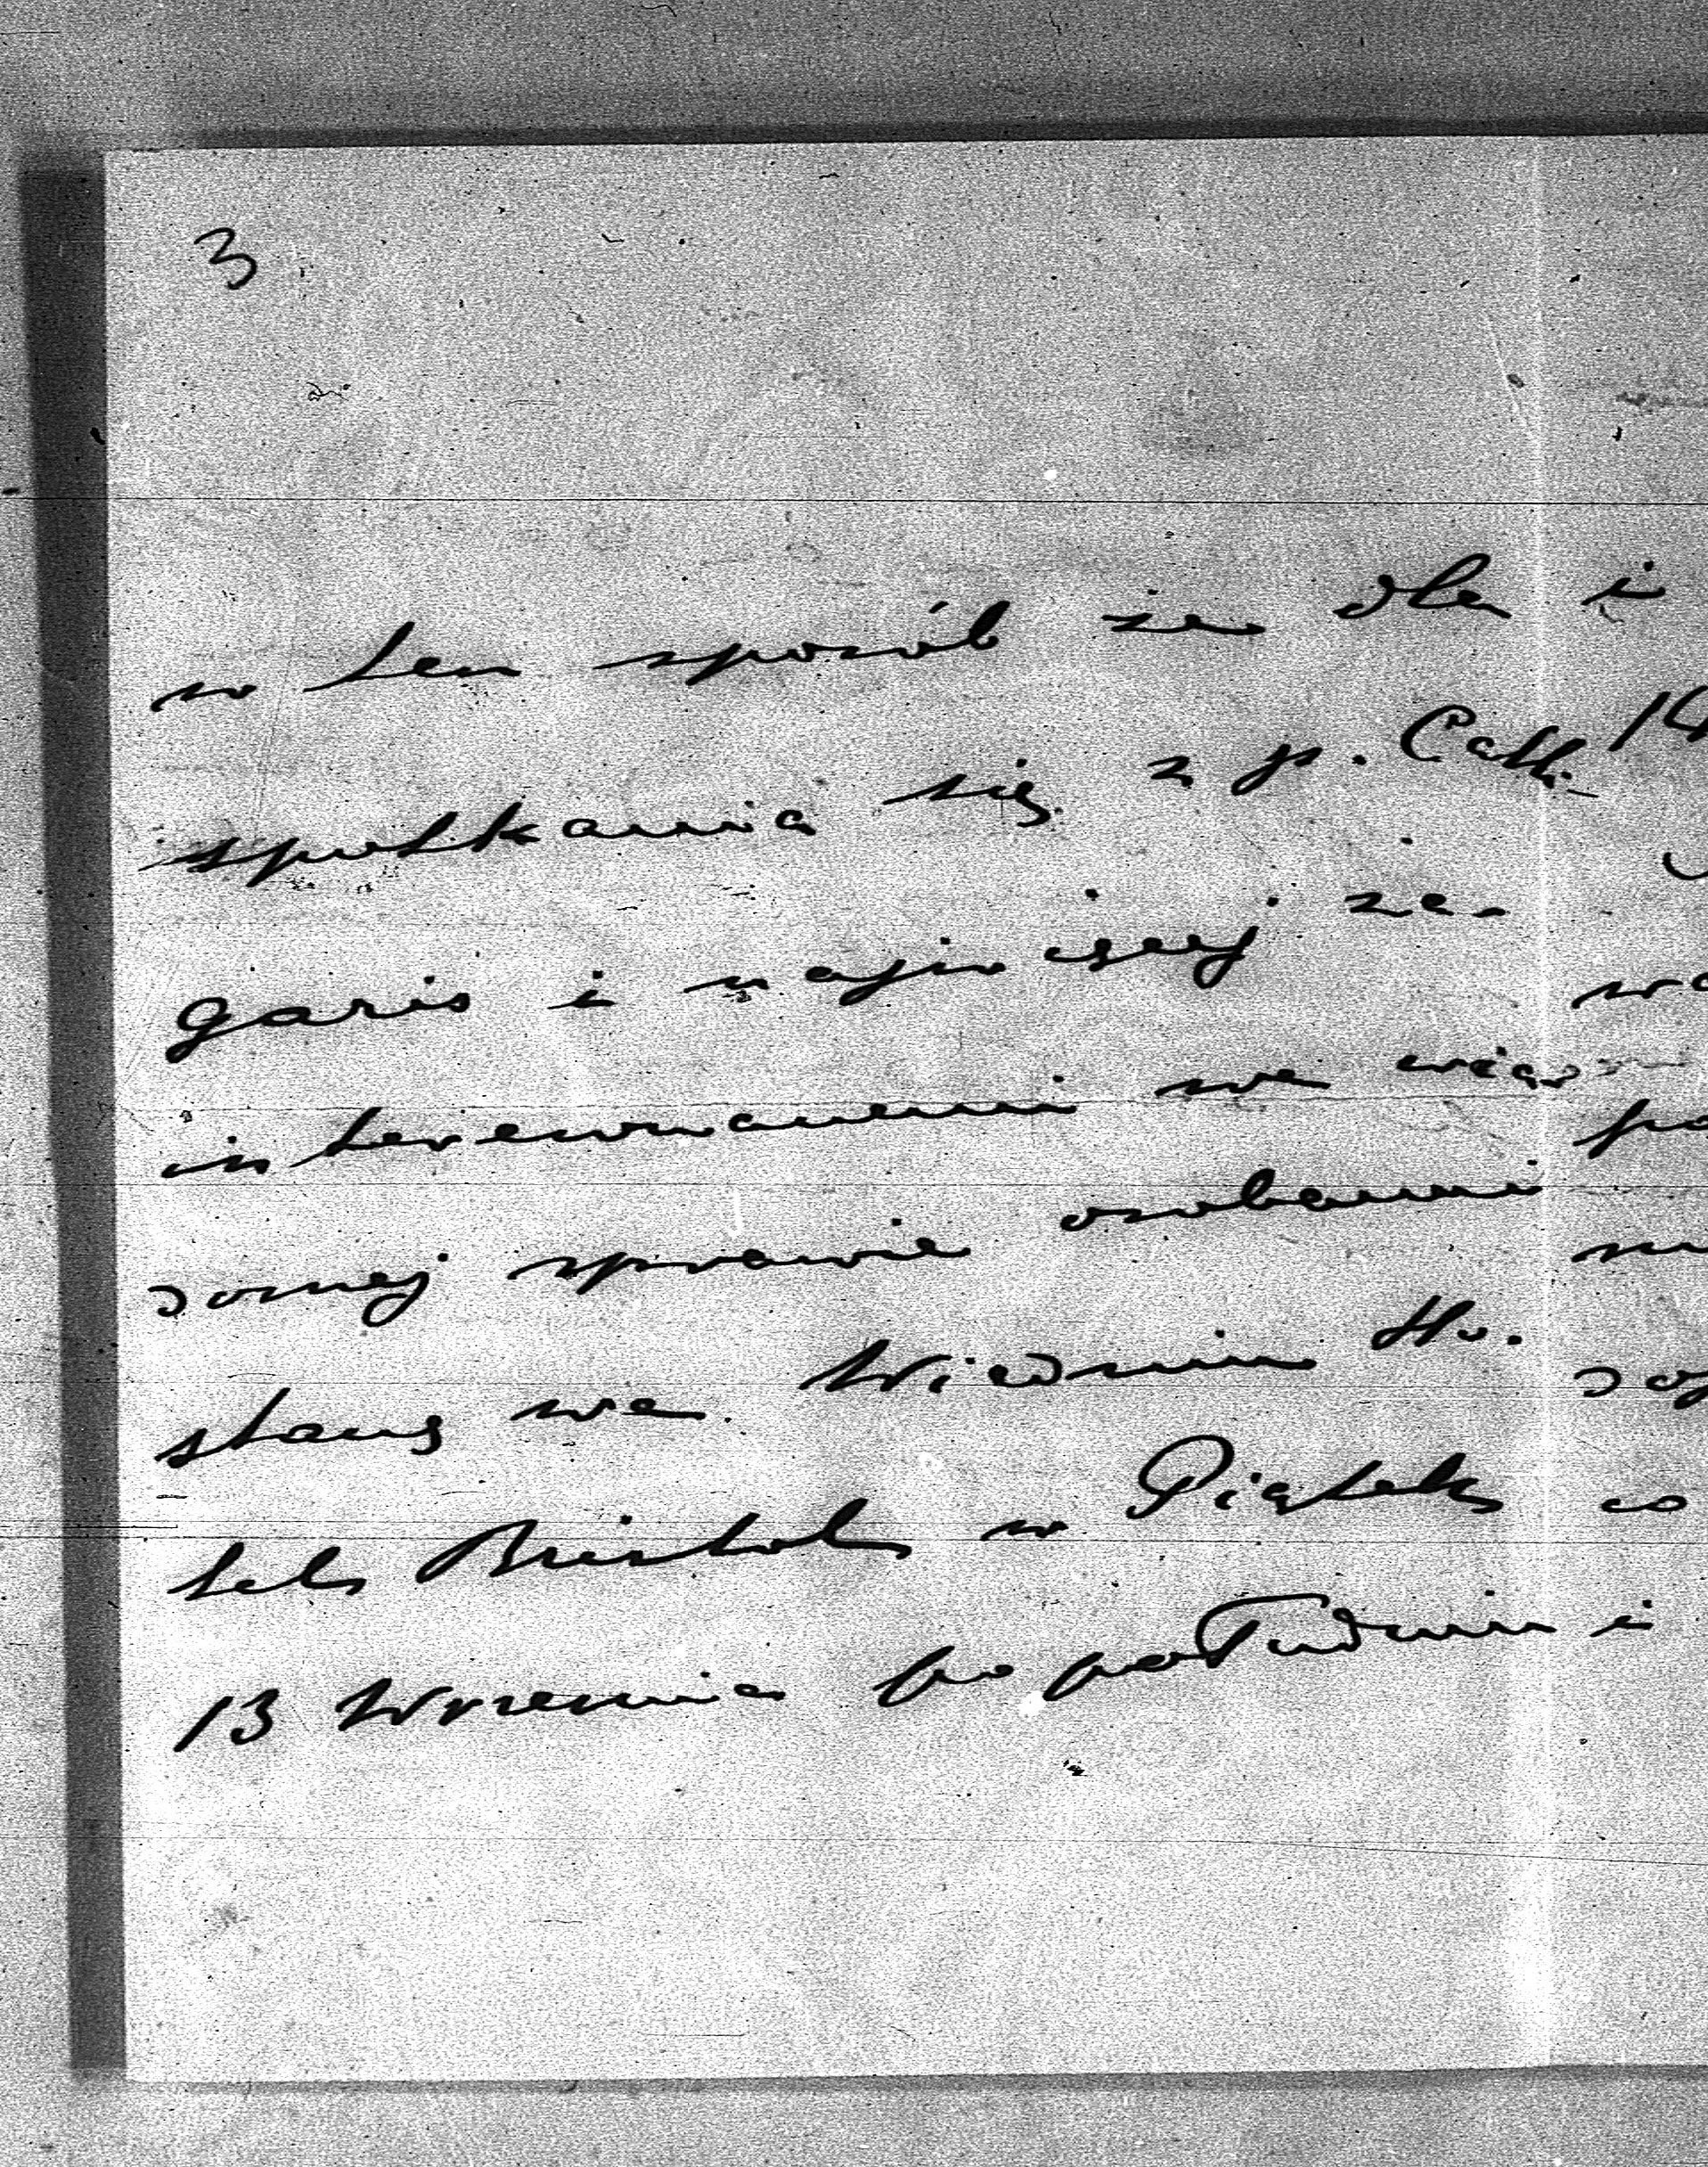 3
w ten sposób że dla
spotkania się z p. Calli-
garis i najwięcej za-
interesowanemi we wia-
domej sprawie osobami
stanę we Wiedniu Ho-
tels Bristol w Piątek
13 Września po południu i